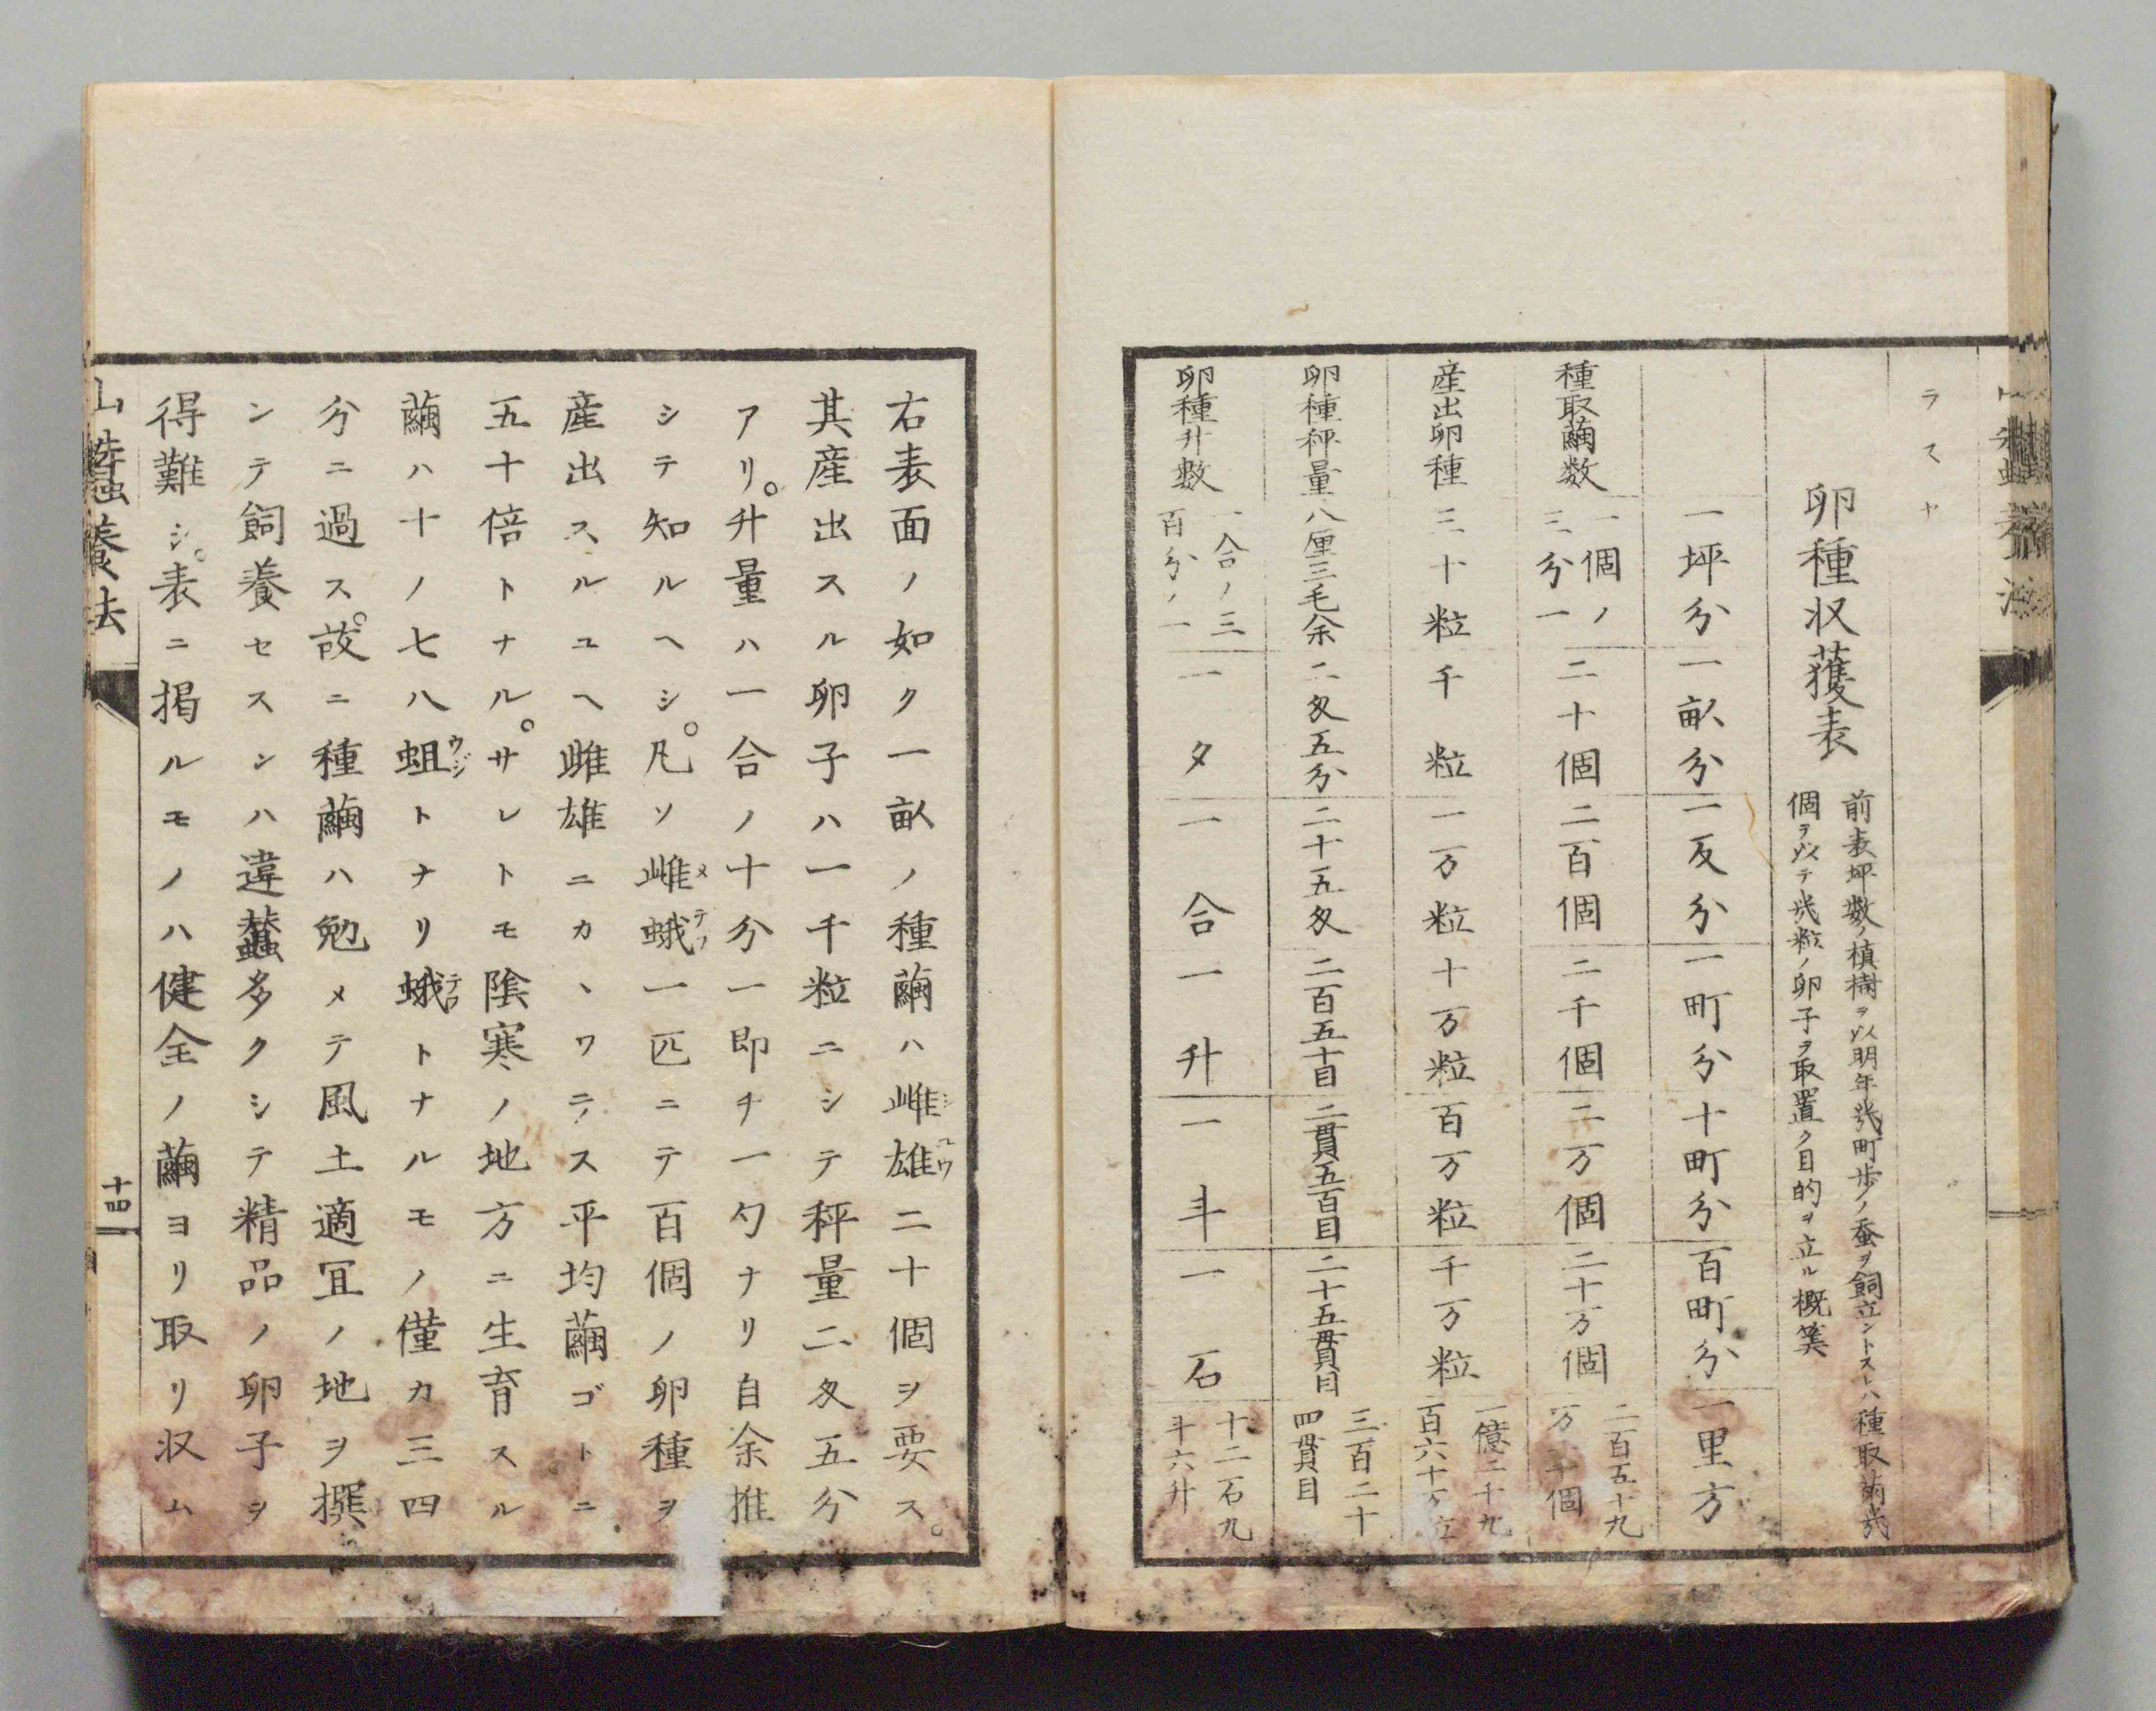 ラスヤ
卵種収獲表
前表坪数ノ植樹ヲ以明年幾町歩ノ蚕ヲ飼立ントスレハ種取繭幾
個ヲ以テ幾粒ノ卵子ヲ取置ク目的ヲ立ル概筭
一坪分 一畝分 一反分 一町分 十町分 百町分 一里方
種取繭数 一個ノ三分一 二十個 二百個 二千個 二万個 二十万個 二百五十九万二千個
産出卵種 三十粒 千粒 一万粒 十万粒 百万粒 千万粒 一億二千九百六十万粒
卵種秤量 八厘三毛余 二匁五分 二十五匁 二百五十目 二貫五百目 二十五貫目 三百二十四貫目
卵種升数 一合ノ三百分ノ一 一夕 一合 一升 一斗 一石 十二石九斗六升
右表面ノ如ク一畝ノ種繭ハ雌雄二十個ヲ要ス。
其産出スル卵子ハ一千粒ニシテ秤量二匁五分
アリ。升量ハ一合ノ十分一即チ一勺ナリ自余推
シテ知ルヘシ。凡ソ雌蛾一匹ニテ百個ノ卵種ヲ
産出スルユヘ雌雄ニカヽワラス平均繭ゴトニ
五十倍トナル。サレトモ陰寒ノ地方ニ生育スル
繭ハ十ノ七八蛆トナリ蛾トナルモノ僅カ三四
分ニ過ス。故ニ種繭ハ勉メテ風土適宜ノ地ヲ撰
ンテ飼養セスンハ違蠶多クシテ精品ノ卵子ヲ
得難シ。表ニ掲ルモノハ健全ノ繭ヨリ取リ収ム
山蠶養法
十四